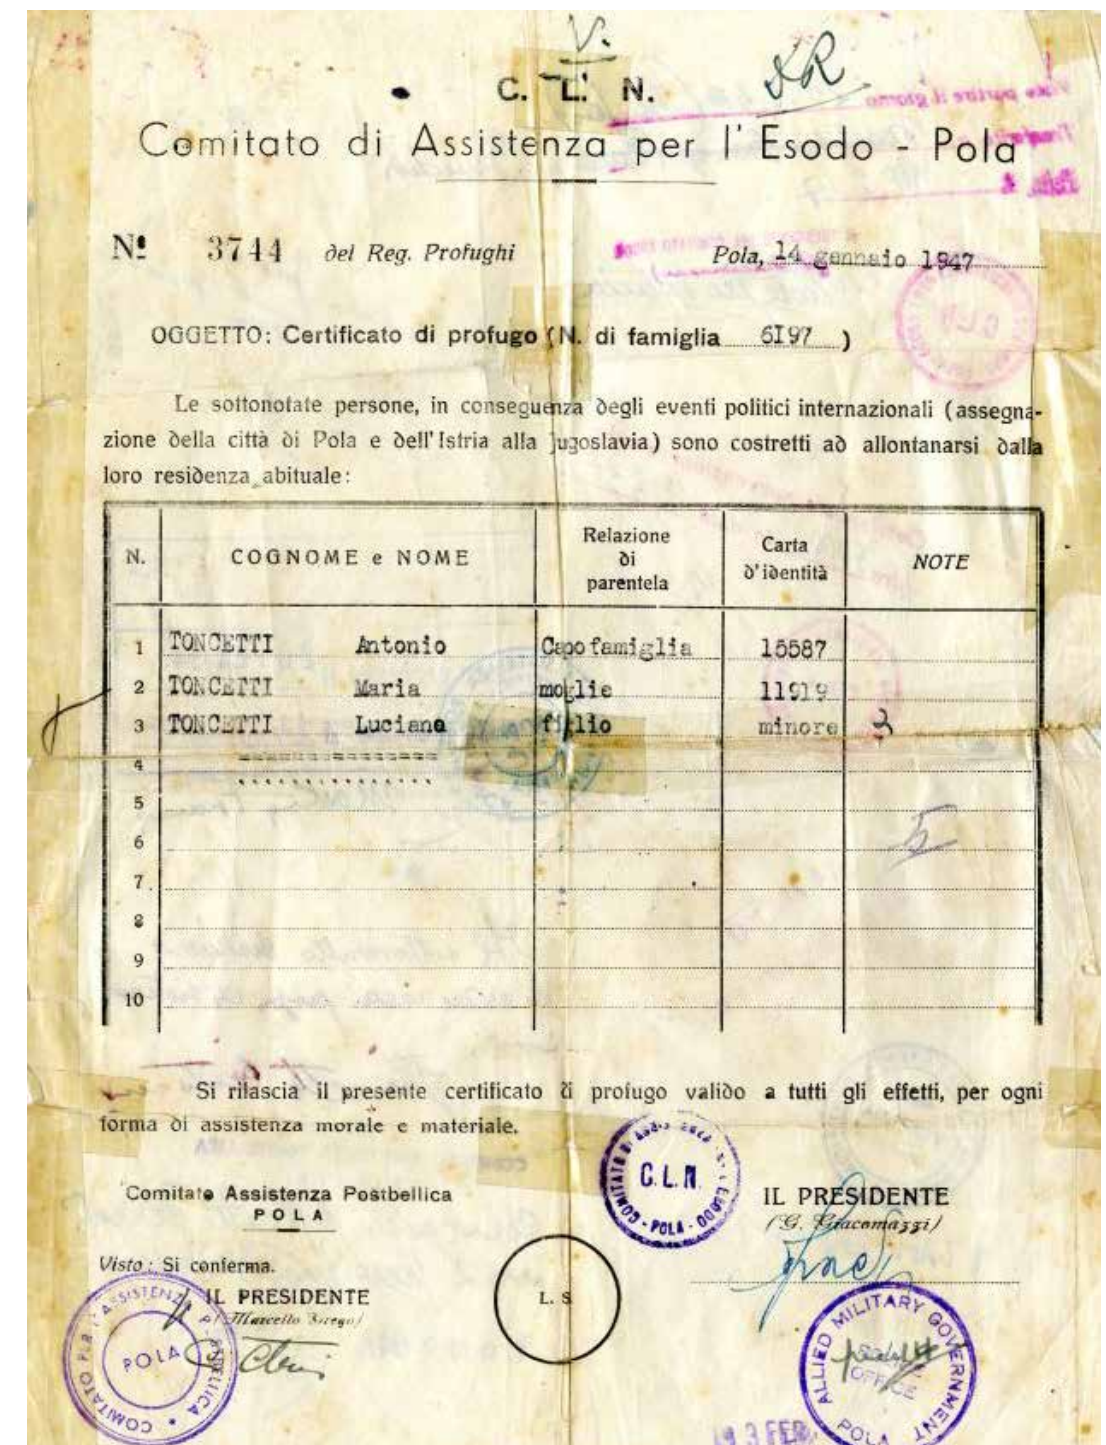 V.
C. L. N.
Comitato di Assistenza per l'Esodo - Pola
Nº 3744 del Reg. Profughi
Pola, 14 gennaio 1947
OGGETTO: Certificato di profugo (N. di famiglia 6I97 )
Le sottonotate persone, in conseguenza degli eventi politici internazionali (assegna-
zione della città di Pola e dell'Istria alla Jugoslavia) sono costretti ad allontanarsi dalla
loro residenza abituale:
N. COGNOME e NOME Relazione di parentela Carta d'identità NOTE
1 TONCETTI Antonio Capofamiglia 15587
2 TONCETTI Maria moglie 11919
3 TONCETTI Luciano figlio minore 3
4
5
6 5
7.
8
9
10
Si rilascia il presente certificato di profugo valido a tutti gli effetti, per ogni
forma di assistenza morale e materiale.
Comitato Assistenza Postbellica
POLA
Visto: Si conferma.
IL PRESIDENTE
(Marcello
COMITATO PER L'ASSISTENZA POSTBELLICA
POLA
L. S.
COMITATO DI ASSISTENZA ESODO - POLA -
C.L.N.
IL PRESIDENTE
(G. Giacomazzi)
ALLIED MILITARY GOVERNMENT
OFFICE
POLA
3 FEB